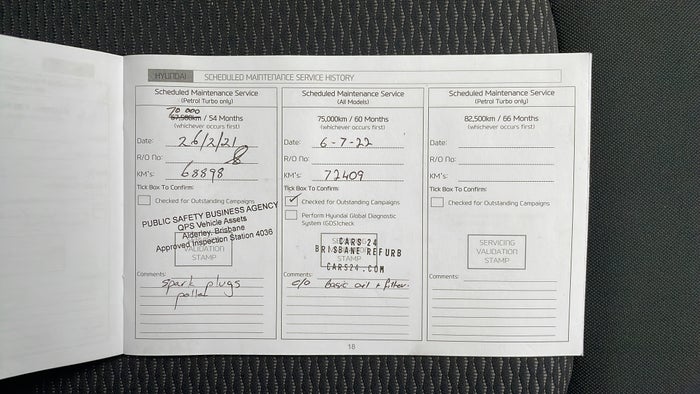 HYUNDAI SCHEDULED MAINTENANCE SERVICE HISTORY
Scheduled Maintenance Service
(Petrol Turbo only)
70 000
67,500km / 54 Months
(whichever occurs first)
Date: 26/2/21
R/O No:
KM's: 68898
Tick Box To Confirm:
Checked for Outstanding Campaigns
PUBLIC SAFETY BUSINESS AGENCY
QPS Vehicle Assets
Alderley, Brisbane
Approved Inspection Station 4036
VALIDATION
STAMP
Comments:
spark plugs
pollen
Scheduled Maintenance Service
(All Models)
75,000km / 60 Months
(whichever occurs first)
Date: 6-7-22
R/O No:
KM's: 72409
Tick Box To Confirm:
Checked for Outstanding Campaigns
Perform Hyundai Global Diagnostic
System (GDS)check
CARS 24
BRISBANE REFURB
CARS24.COM
Comments:
c/o Basic oil + filter.
Scheduled Maintenance Service
(Petrol Turbo only)
82,500km / 66 Months
(whichever occurs first)
Date:
R/O No:
KM's:
Tick Box To Confirm:
Checked for Outstanding Campaigns
SERVICING
VALIDATION
STAMP
Comments:
18